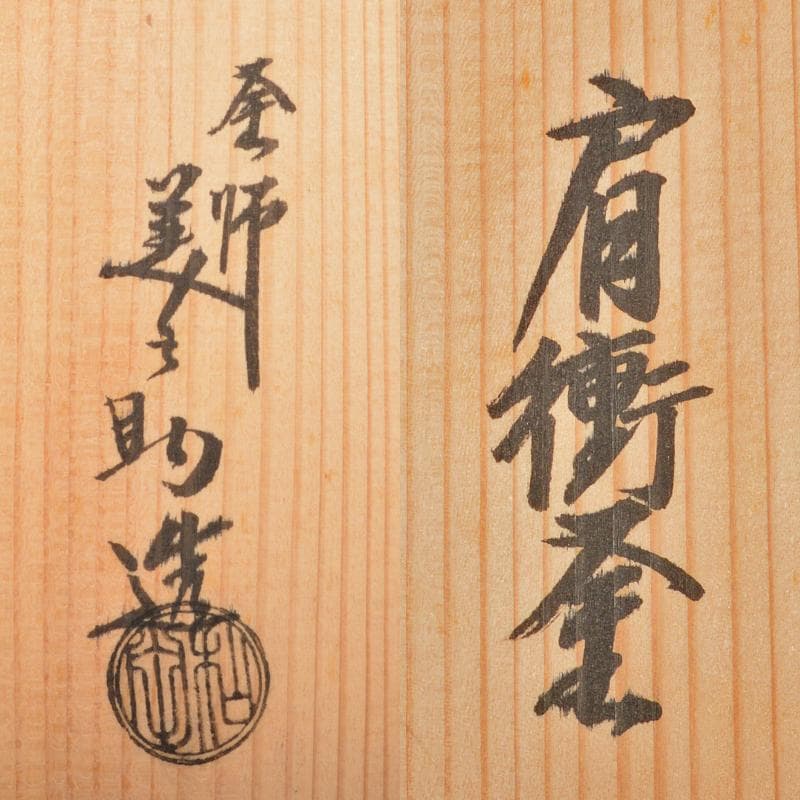 肩衝釜
釜師
美之助造